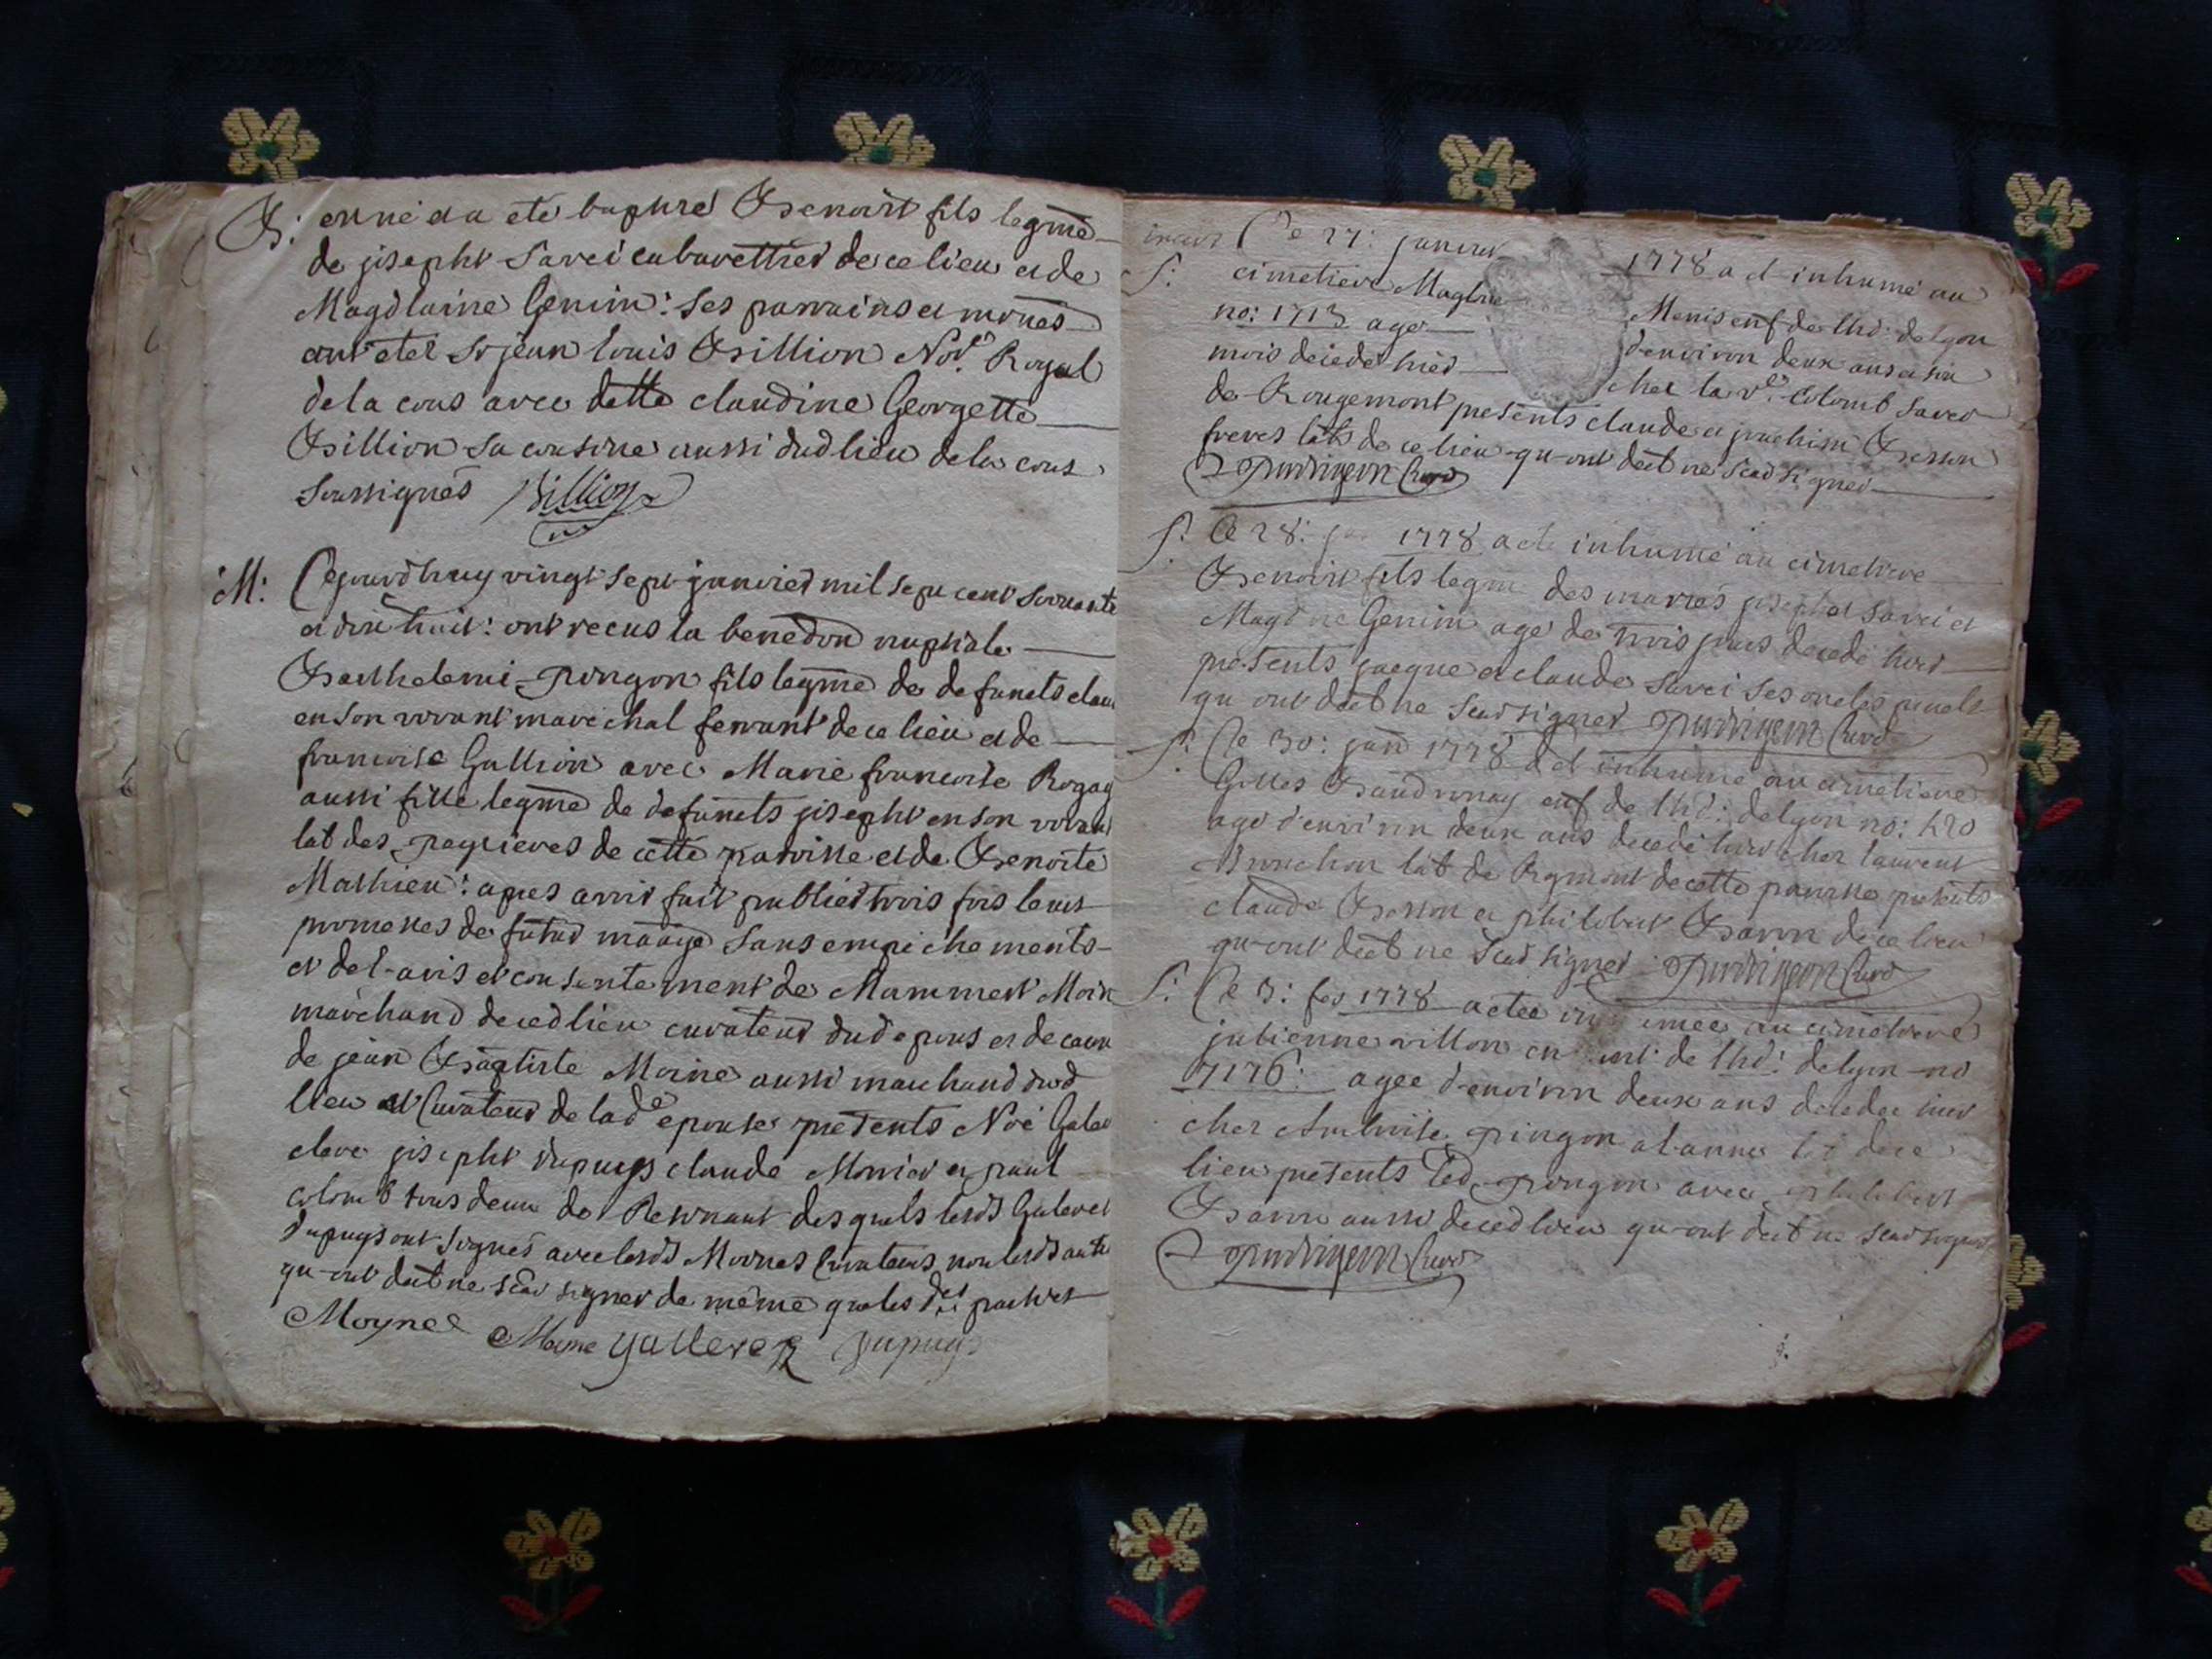 B: en né et a eté baptisé Benoist fils legme
de joseph Savei cabarettier de ce lieu et de
Magdlaine Genin: ses parrains et mrnes
ont eté Sr jean louis Billion Nore Royal
de la cous avec dette claudine Georgette
Billion sa cousine aussi dud lieu de la cous
soussignés Billion
M: Cejourdhuy vingt sept janvier mil sept cent soixante
et dix huit: ont recus la benedon nuptiale
Barthelemi pingon fils legme de defuncts clau
en son vivant maréchal ferrant de ce lieu et de
francoise Gallion avec Marie francoise Rogay
aussi fille legme de defuncts joseph en son vivant
lab des payieres de cette parroisse et de Benoite
Mathieu: apres avoir fait publier trois fois leurs
promesses de futur mariage sans empechements
et de l'avis et consentement de Mammert Moin
marchand de ced lieu curateur dud epoux et de
de jean Baptiste Moine aussi marchand dud
lieu et Curateur de lade epouse presents Noé Galle
clerc joseph dupuys claude Monier et paul
colomb tous deux de desquels lesds Galleret
dupuys ont signés avec lesds Moines Curateurs non lesds autre
qu-ont dect ne scav signer de même que les des parties
Moyne Moine Gallere dupuys
Ce 27: janvier 1778 a et inhumé au
S: cimetiere Menis enf de lhd: de lyon
no: 1713 age d'environ deux ans et six
mois decedé hier chez la ve Colomb
de Rougemont presents claude et joachim Besson
freres labs de ce lieu qu-ont dect ne scav signer
Curé
S: Ce 28: 1778 a eté inhumé au cimetiere
Benoist fils legme des mariés joseph Savei et
Magdne Genin agé de trois jours decedé hier
presents jacque et claude Savei ses oncles
qu ont dect ne scav signer Curé
S: Ce 30: janv 1778 a et inhumé au cimetiere
Gilles enf de lhd: de lyon no: 420
agé d'environ deux ans decedé hier chez laurent
lab de de cette parroisse presents
claude Besson et philibert Baron de ce lieu
qu-ont dect ne scav signer Curé
S: Ce 3: fev 1778 a eteé inhumeé au cimetiere
julienne villon enfant de lhd: de lyon no
7176: ageé d'environ deux ans decedeé hier
chez Ambroise pingon lab de ce
lieu presents led pingon avec philibert
Baron aussi de ced lieu qu-ont dect ne scav signer
Curé